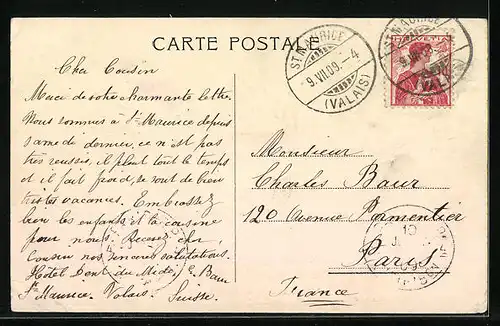 CARTE POSTALE
ST MAURICE
9.VII.09.–4
(VALAIS)
ST MAURICE
9.VII.09
VALAIS
Cher Cousin
Merci de votre charmante lettre.
Nous sommes à St Maurice depuis
samedi dernier, ce n'est pas
très reussi, il pleut tout le temps
et il fait froid, ce sont de bien
tristes vacances. Embrassez
bien les enfants et la cousine
pour nous. Recevez cher
cousin nos sincères salutations.
Hôtel Dent du Midi, E. Baur
St Maurice. Valais. Suisse.
Monsieur
Charles Baur
120 Avenue Parmentier
Paris
France
10